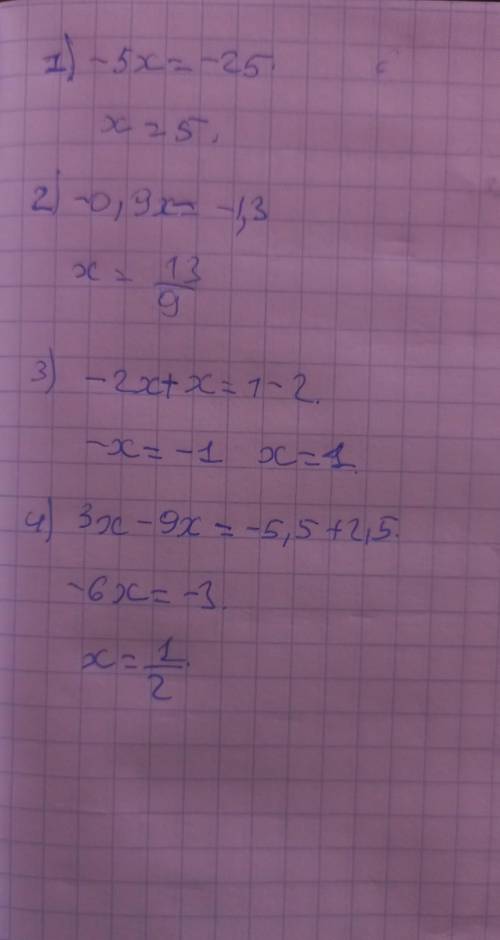 1) -5x = -25.
x = 5.
2) -0,9x = -1,3
x = 13/9
3) -2x + x = 1 - 2.
-x = -1 x = 1.
4) 3x - 9x = -5,5 + 2,5.
-6x = -3.
x = 1/2.